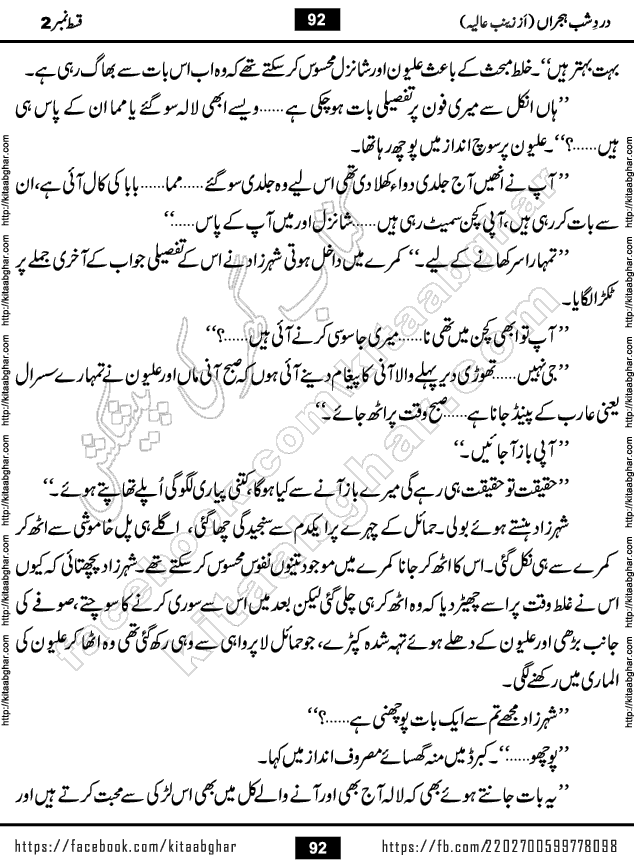 در دِ شب ہجراں (از زینب عالیہ)
92
قسط نمبر 2
بہت بہتر ہیں‘‘۔ خلط مبحث کے باعث علیون اور شانزل محسوس کر سکتے تھے کہ وہ اب اس بات سے بھاگ رہی ہے۔
’’ہاں انکل سے میری فون پر تفصیلی بات ہو چکی ہے……ویسے ابھی لالہ سو گئے یا مما ان کے پاس ہی
ہیں……؟‘‘۔ علیون پرسوچ انداز میں پوچھ رہا تھا۔
’’آپ نے انھیں آج جلدی دواء کھلا دی تھی اس لیے وہ جلدی سو گئے……مما……بابا کی کال آئی ہے، ان
سے بات کر رہی ہیں، آپی کچن سمیٹ رہی ہیں……شانزل اور میں آپ کے پاس……‘‘
’’تمہارا سر کھانے کے لیے۔‘‘ کمرے میں داخل ہوتی شہرزاد نے اس کے تفصیلی جواب کے آخری جملے پر
ٹکڑا لگایا۔
’’آپ تو ابھی کچن میں تھی نا……میری جاسوسی کرنے آئی ہیں……؟‘‘
’’جی نہیں……تھوڑی دیر پہلے والا آنی کا پیغام دینے آئی ہوں کہ صبح آنی ماں اور علیون نے تمہارے سسرال
یعنی عارب کے پینڈ جانا ہے……صبح وقت پر اٹھ جائے۔‘‘
’’آپی باز آ جائیں۔‘‘
’’حقیقت تو حقیقت ہی رہے گی میرے باز آنے سے کیا ہوگا، کتنی پیاری لگو گی اُپلے تھاپتے ہوئے۔‘‘
شہرزاد ہنستے ہوئے بولی۔ حمائل کے چہرے پر ایکدم سے سنجیدگی چھا گئی، اگلے ہی پل خاموشی سے اٹھ کر
کمرے سے ہی نکل گئی۔ اس کا اٹھ کر جانا کمرے میں موجود تینوں نفوس محسوس کر سکتے تھے۔ شہرزاد پچھتائی کہ کیوں
اس نے غلط وقت پر اسے چھیڑ دیا کہ وہ اٹھ کر ہی چلی گئی لیکن بعد میں اس سے سوری کرنے کا سوچتے، صوفے کی
جانب بڑھی اور علیون کے دھلے ہوئے تہہ شدہ کپڑے، جو حمائل لاپرواہی سے وہی رکھ گئی تھی وہ اٹھا کر علیون کی
الماری میں رکھنے لگی۔
’’شہرزاد مجھے تم سے ایک بات پوچھنی ہے……؟‘‘
’’پوچھو……‘‘۔ کبرڈ میں منہ گھسائے مصروف انداز میں کہا۔
’’یہ بات جانتے ہوئے بھی کہ لالہ آج بھی اور آنے والے کل میں بھی اس لڑکی سے محبت کرتے ہیں اور
https://facebook.com/kitaabghar
92
https://fb.com/2202700599778098
http://kitaabghar.com http://kitaabghar.com http://kitaabghar.com http://kitaabghar.com http://kitaabghar.com http://kitaabghar.com
http://kitaabghar.com http://kitaabghar.com http://kitaabghar.com http://kitaabghar.com http://kitaabghar.com http://kitaabghar.com
کتاب گھر کی پیشکش
kitaabghar.com
facebook.com/kitaabghar